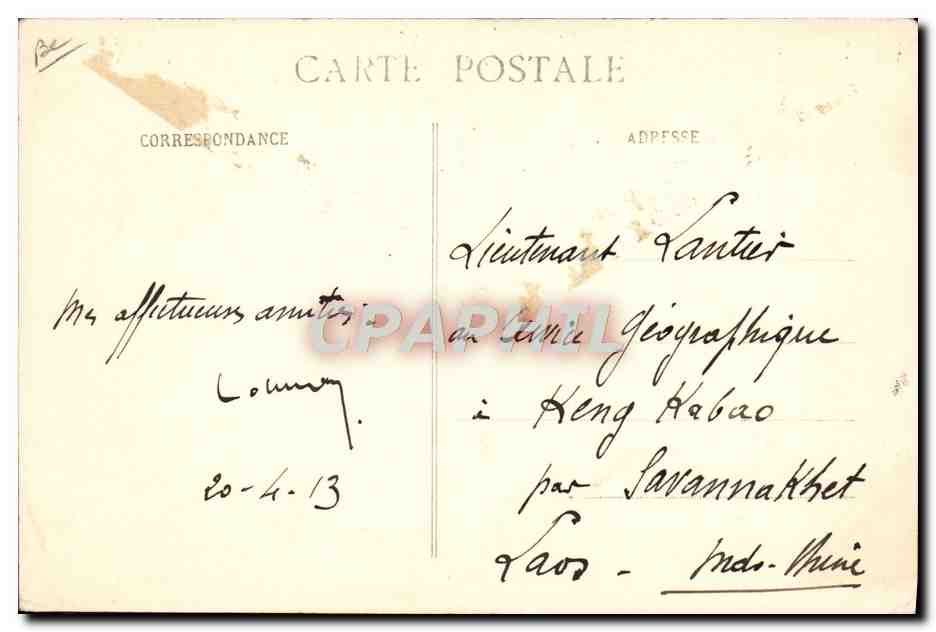 Be
CARTE POSTALE
CORRESPONDANCE
ADRESSE
Mes affectueuses amitiés.
20-4-13
Lieutenant Lantier
au Service Géographique
à Keng Kabao
par Savannakhet
Laos - Indo-Chine
CPAPHIL